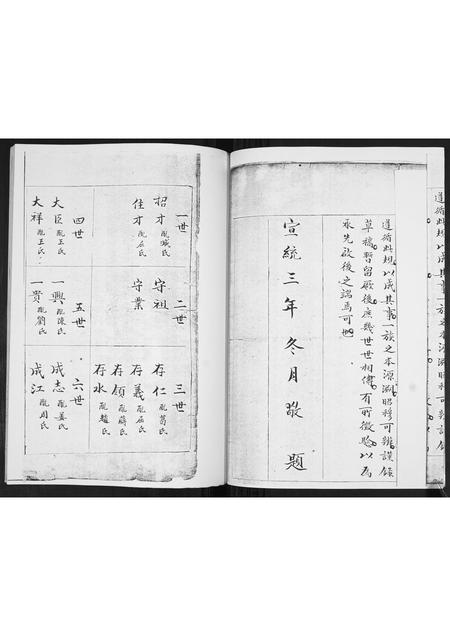 遵循規以成其事一族之本源溯昭穆可辨謹領
草稿暫留厥後庶幾世世相傳有所徵驗以為
承先啟後之端焉可也
宣統三年冬月敬題
一世
招才 配 氏
住才 配 氏
二世
守祖
守業
三世
存仁 配葛氏
存義 配 氏
存領 配 氏
存水 配趙氏
四世
大臣 配王氏
大祥 配王氏
五世
一興 配陳氏
一貴 配劉氏
六世
成志 配姜氏
成江 配周氏